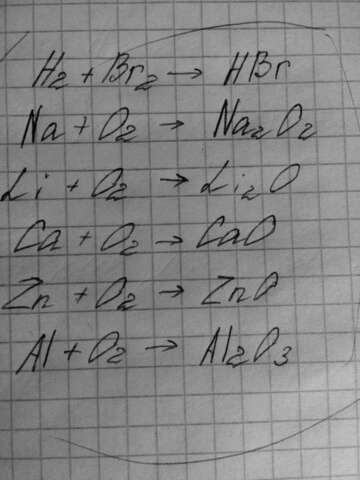 H₂ + Br₂ → HBr
Na + O₂ → Na₂O₂
Li + O₂ → Li₂O
Ca + O₂ → CaO
Zn + O₂ → ZnO
Al + O₂ → Al₂O₃